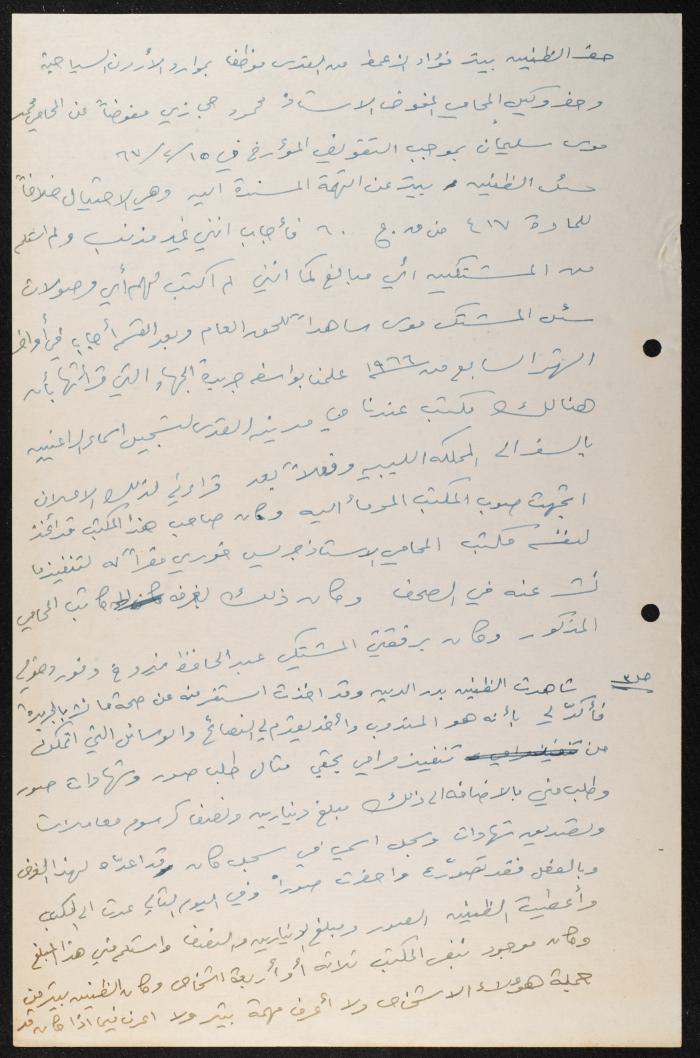 حضر الظنين بيتر فؤاد الزعمط من القدس موظف بموارد الأردن السياحية
وحضر وكيل المحامي المفوض الاستاذ محمود حجازي مفوضاً عن المحامي محمد
موسى سليمان بموجب التفويض المؤرخ في ١٥/٢/٦٧
سئل الظنين بيتر عن التهمة المسندة اليه وهي الاحتيال خلافاً
للمادة ٤١٧ من ق.ع ٦٠ فأجاب انني غير مذنب ولم استلم
من المشتكين اي مبالغ كما انني لم اكتب لهم أي وصولات
سئل المشتكي موسى شاهداً للحق العام وبعد القسم أجاب في أواخر
الشهر السابع من ١٩٦٦ علمنا بواسطة جريدة الجهاد التي قرأتها بأن
هنالك مكتب عندنا في مدينة القدس لتسجيل اسماء الراغبين
بالسفر الى المملكه الليبيه وفعلاً بعد قراءتي لذلك الاعلان
اتجهت صوب المكتب المومأ اليه وكان صاحب هذا المكتب قد اتخذ
لنفسه مكتب المحامي الاستاذ جريس خوري مقراً له لتنفيذ ما
نشر عنه في الصحف وكان ذلك بغرفة كاتب المحامي
المذكور وكان برفقتي المشتكي عبد الحافظ
ص٣ شاهدت الظنين بدر الدين وقد اخذت استفسر منه عن صحة ما نشر بالجريدة
فأكد لي بأنه هو المندوب وأخذ يقدم لي النصائح والوسائل التي اتمكن
من تنفيذ مرامي بحقي مثال طلب صور وشهادات صور
وطلب مني بالاضافه الى ذلك مبلغ دينارين ونصف كرسوم معاملات
وتصديق شهادات وسجل اسمي في سجل كان قد اعده لهذا الغرض
وبالفعل فقد تصورت واحضرت صوراً وفي اليوم التالي عدت الى المكتب
وأعطيت الظنين الصور ومبلغ الدينارين والنصف واستلم مني هذا المبلغ
وكان موجود بنفس المكتب ثلاثة أو أربعة اشخاص وكان الظنين بيتر من
جملة هؤلاء الاشخاص ولا أعرف مهمة بيتر ولا اعرف فيما اذا كان قد